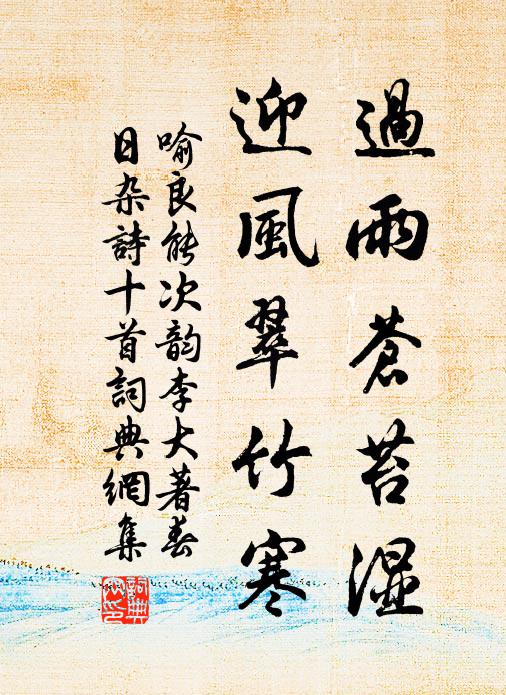 過雨蒼苔湿
迎風翠竹寒
喻良能次韵李大著春
日杂詩十首詞典網集